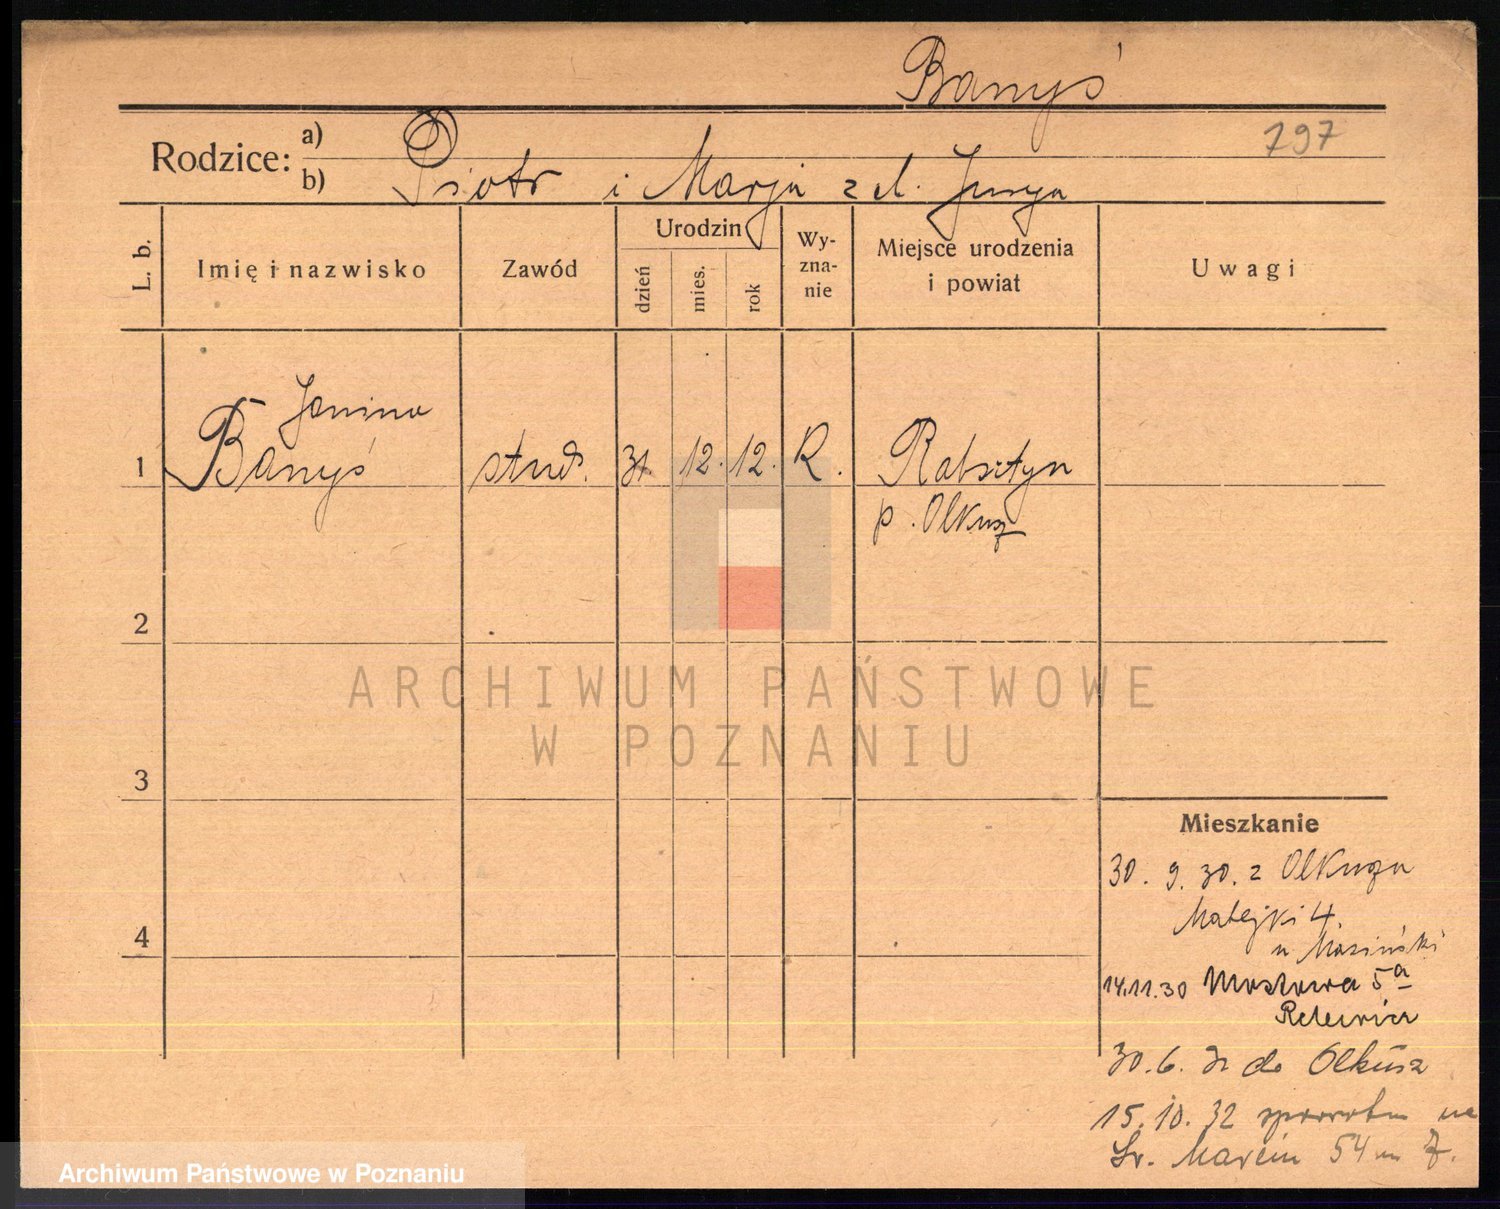 Banyś
797
Rodzice: a)
b) Piotr i Marja z d.
L. b.
Imię i nazwisko
Zawód
Urodzin
dzień
mies.
rok
Wy-
zna-
nie
Miejsce urodzenia
i powiat
Uwagi
Janina
1 Banyś stud. 31. 12. 12. R. Rabsztyn
p. Olkusz
2
ARCHIWUM PAŃSTWOWE
W POZNANIU
3
Mieszkanie
30. 9. 30. z Olkusza
Matejki 4.
4
14.11.30 Mostowa 5a
30. 6. do Olkusz
15. 10. 32 na
św. Marcin 54 m 7.
Archiwum Państwowe w Poznaniu